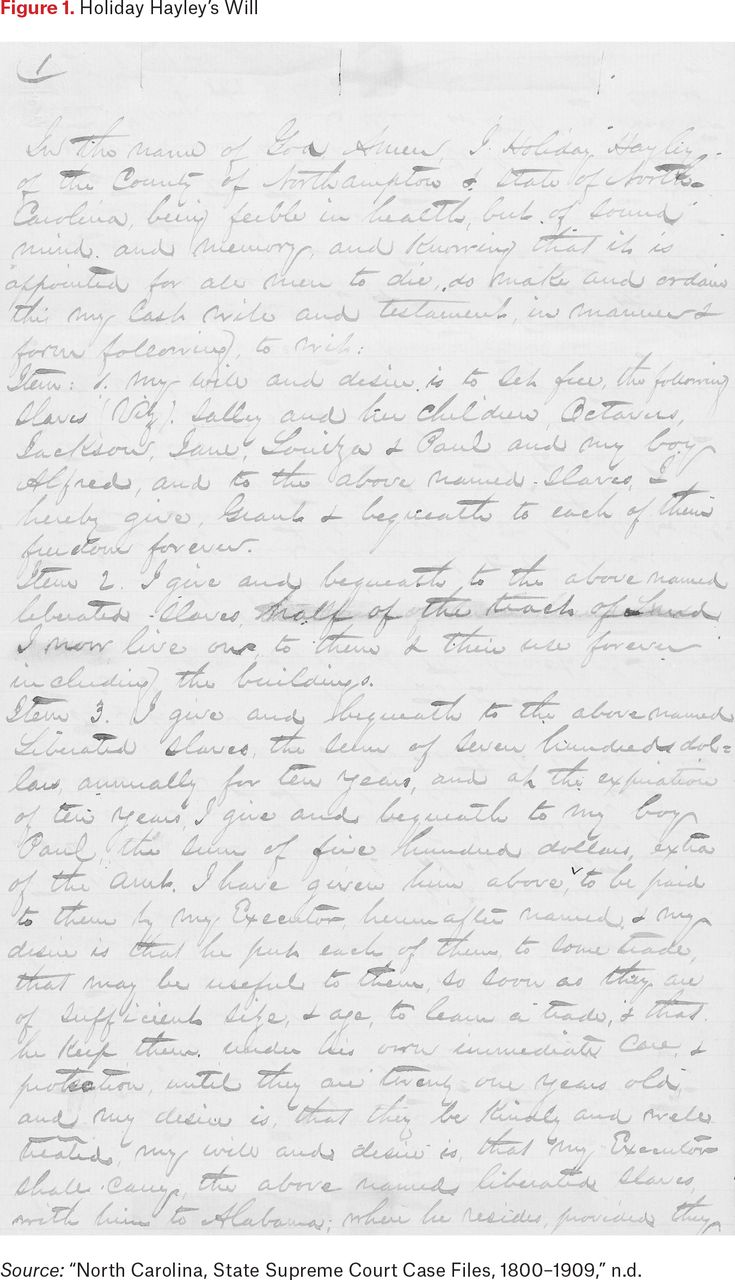 Figure 1. Holiday Hayley’s Will
1
In the name of God, Amen, I Holiday Hayley
of the County of Northampton & State of North=
Carolina, being feeble in health, but of sound
mind and memory, and knowing that it is
appointed for all men to die, do make and ordain
this my last will and testament, in manner &
form following, to wit:
Item: 1. my will and desire is to set free, the following
slaves (Viz). Salley and her children, Octavus,
Jackson, Jane, Louiza & Paul and my boy
Alfred, and to the above named slaves, I
hereby give, Grant & bequeath to each of them
freedom forever.
Item 2. I give and bequeath to the above named
liberated slaves, half of the track of Land
I now live on, to them & their use forever
including the buildings.
Item 3. I give and bequeath to the above named
Liberated slaves, the sum of seven hundred dol=
lars, annually for ten years, and at the expiration
of ten years, I give and bequeath to my boy
Paul, the sum of five hundred dollars, extra
of the amt. I have given him above, to be paid
to them by my Executor, hereinafter named, & my
desire is that he put each of them, to some trade,
that may be useful to them, so soon as they are
of sufficient size, & age, to learn a trade, & that
he keep them under his own immediate care, &
protection, until they are twenty one years old,
and my desire is, that they be kindly and well
treated, my will and desire is, that my Executor
shall carry, the above named liberated slaves,
with him to Alabama; where he resides, provided they
Source: “North Carolina, State Supreme Court Case Files, 1800–1909,” n.d.